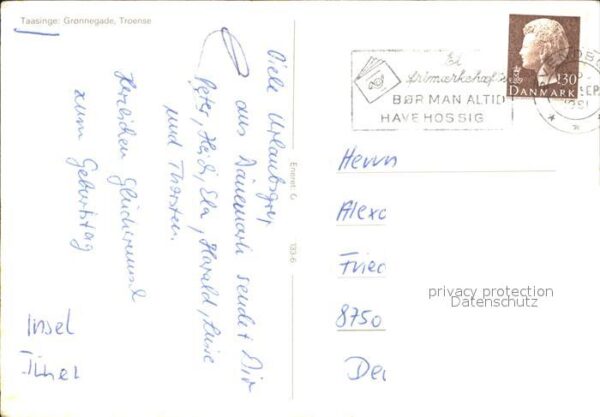 Taasinge: Grønnegade, Troense
Viele Urlaubsgrüße
aus Dänemark sendet Dir
Peter, Heidi, Ela, Harald, Luise
und Thorsten.
Herzlichen Glückwunsch
zum Geburtstag
Insel
Eneret
133-6
Et
frimærkehæfte
BØR MAN ALTID
HAVE HOS SIG
SEP.
130
DANMARK
Herrn
Alexa
Fried
8750
privacy protection
Datenschutz